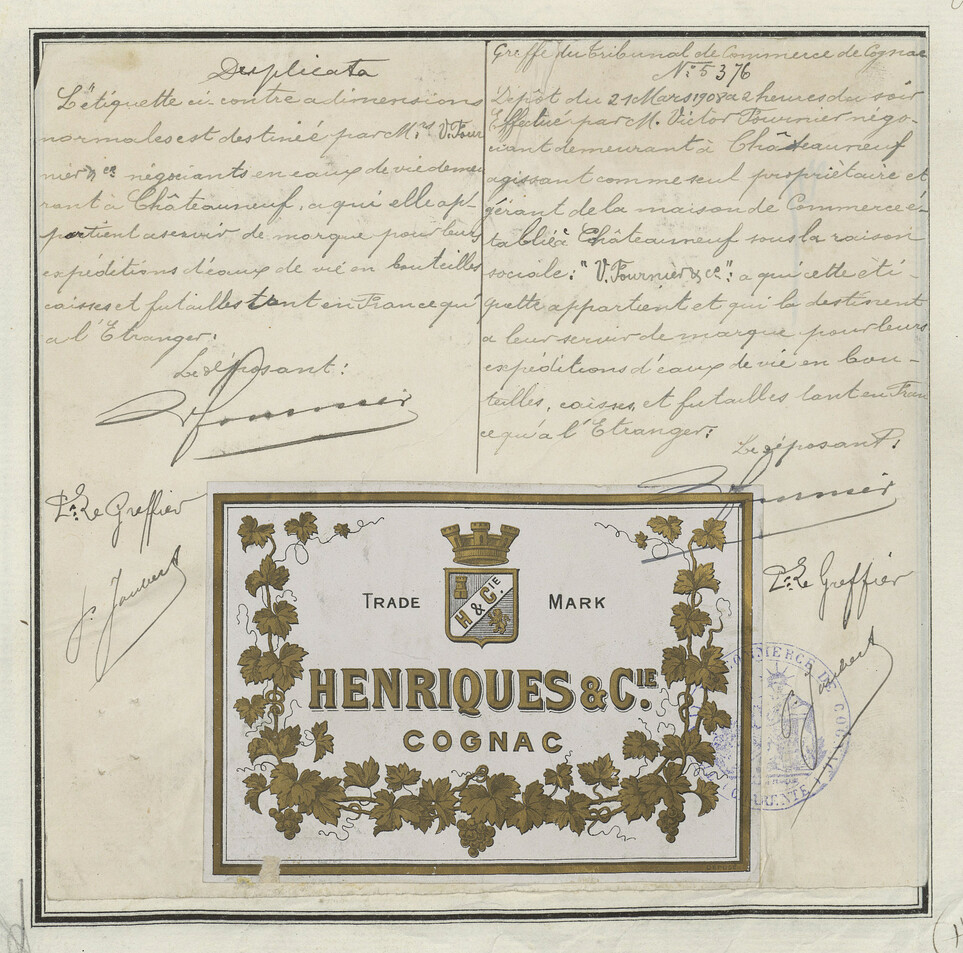 Duplicata
L'étiquette ci-contre a dimensions
normales est destinée par Mrs V. Four
nier & Ce négociants en eaux de vie demeu
rant à Châteauneuf, a qui elle ap-
partient a servir de marque pour leurs
expéditions d'eaux de vie en bouteilles
caisses et futailles tant en France qu'
a l'Etranger.
Le déposant:
V Fournier
Pr. Le Greffier
J. Joubert
Greffe du Tribunal de Commerce de Cognac
No. 5376
Dépôt du 21 Mars 1908 a 2 heures du soir
Effectué par M. Victor Fournier négo-
ciant demeurant à Châteauneuf
agissant comme seul propriétaire et
gérant de la maison de Commerce é-
tablie à Châteauneuf sous la raison
sociale: "V. Fournier & Ce": a qui cette éti-
quette appartient et qui la destinent
a leur servir de marque pour leurs
expéditions d'eaux de vie en bou-
teilles, caisses, et futailles tant en Fran
ce qu'a l'Etranger:
Le déposant:
V Fournier
Pr. Le Greffier
J. Joubert
TRADE MARK
H & CIE
HENRIQUES & CIE.
COGNAC
COMMERCE DE COGNAC
CHARENTE